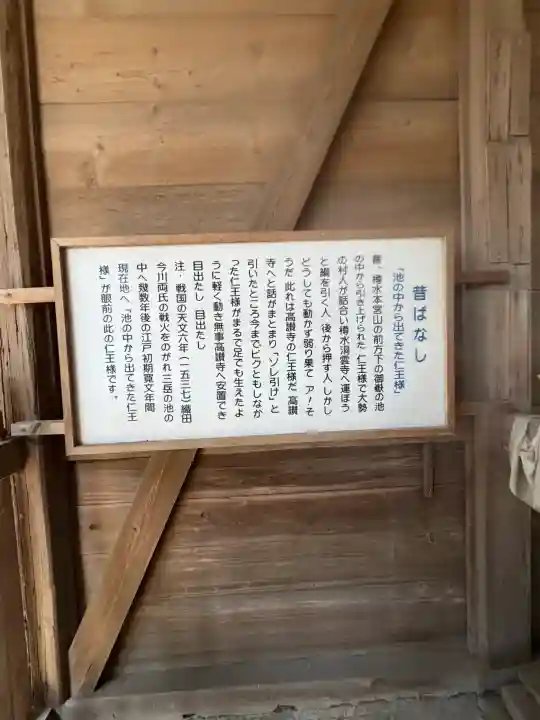 昔ばなし
「池の中から出てきた仁王様」
昔、樽水本宮山の前方下の御嶽の池
の中から引き上げられた 仁王様で大勢
の村人が話合い樽水洞雲寺へ運ぼう
と綱を引く人 後から押す人 しかし
どうしても動かず弱り果て ア！そ
うだ 此れは高讃寺の仁王様だ 高讃
寺へと話がまとまり、「ソレ引け」と
引いたところ今までビクともしなか
った仁王様がまるで足でも生えたよ
うに軽く動き無事高讃寺へ安置でき
目出たし 目出たし
注・戦国の天文六年（一五三七）織田
今川両氏の戦火をのがれ三岳の池の
中へ幾数年後の江戸初期寛文年間
現在地へ「池の中から出てきた仁王
様」が眼前の此の仁王様です。